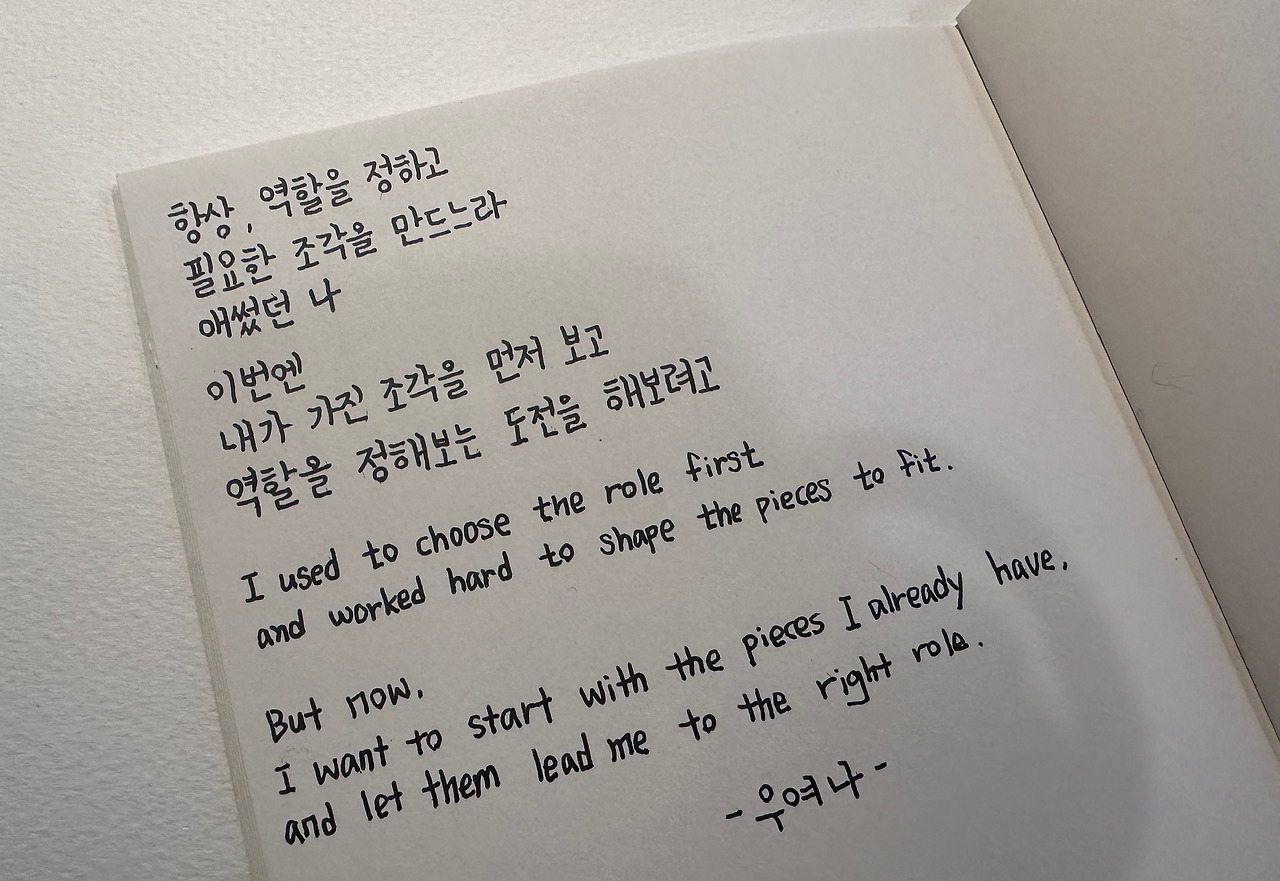 항상, 역할을 정하고
필요한 조각을 만드느라
애썼던 나
이번엔
내가 가진 조각을 먼저 보고
역할을 정해보는 도전을 해보려고
I used to choose the role first
and worked hard to shape the pieces to fit.
But now,
I want to start with the pieces I already have,
and let them lead me to the right role.
- 우여나 -